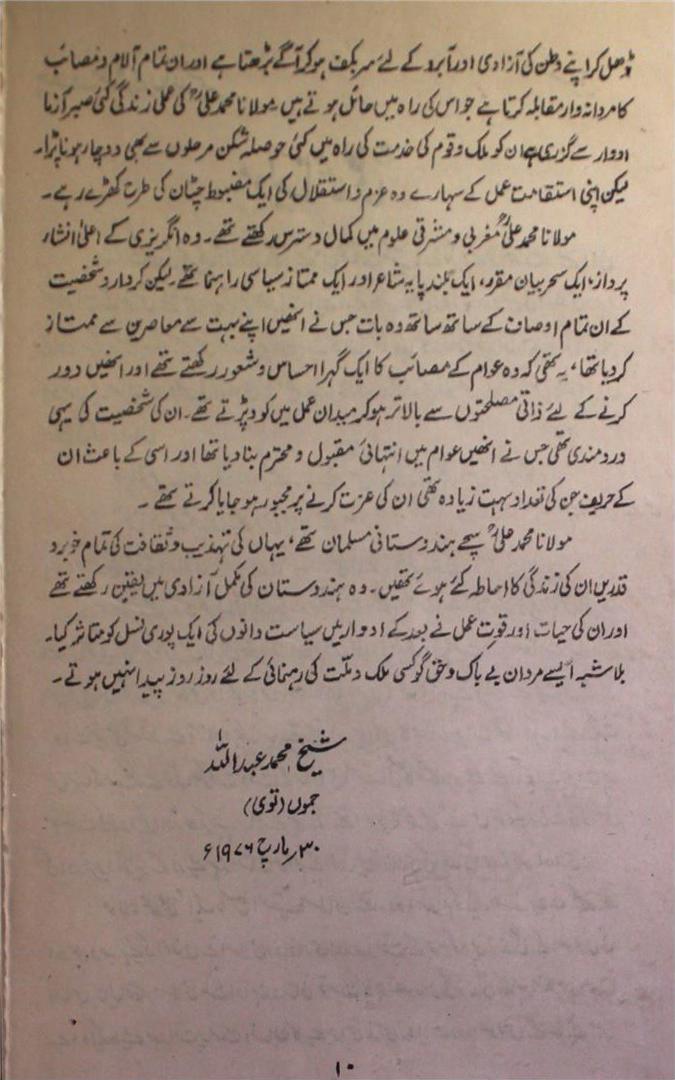 ڈھل کر اپنے وطن کی آزادی اور آبرو کے لئے سربکف ہو کر آگے بڑھتا ہے اور ان تمام آلام و مصائب
کا مردانہ وار مقابلہ کرتا ہے جو اس کی راہ میں حائل ہوتے ہیں۔ مولانا محمد علیؒ کی عملی زندگی کئی صبر آزما
ادوار سے گزری ہے ان کو ملک و قوم کی خدمت کی راہ میں کئی حوصلہ شکن مرحلوں سے بھی دوچار ہونا پڑا۔
لیکن اپنی استقامت عمل کے سہارے وہ عزم و استقلال کی ایک مضبوط چٹان کی طرح کھڑے رہے۔
مولانا محمد علیؒ مغربی و مشرقی علوم میں کمال دسترس رکھتے تھے۔ وہ انگریزی کے اعلیٰ انشاء
پرداز، ایک سحر بیان مقرر، ایک بلند پایہ شاعر اور ایک ممتاز سیاسی راہنما تھے۔ لیکن کردار و شخصیت
کے ان تمام اوصاف کے ساتھ ساتھ وہ بات جس نے انھیں اپنے بہت سے معاصرین سے ممتاز
کر دیا تھا، یہ تھی کہ وہ عوام کے مصائب کا ایک گہرا احساس و شعور رکھتے تھے اور انھیں دور
کرنے کے لئے ذاتی مصلحتوں سے بالاتر ہو کر میدان عمل میں کود پڑتے تھے۔ ان کی شخصیت کی یہی
دردمندی تھی جس نے انھیں عوام میں انتہائی مقبول و محترم بنا دیا تھا اور اسی کے باعث ان
کے حریف جن کی تعداد بہت زیادہ تھی ان کی عزت کرنے پر مجبور ہو جایا کرتے تھے۔
مولانا محمد علیؒ سچے ہندوستانی مسلمان تھے، یہاں کی تہذیب و ثقافت کی تمام خوبرو
قدریں ان کی زندگی کا احاطہ کئے ہوئے تھیں۔ وہ ہندوستان کی مکمل آزادی میں یقین رکھتے تھے
اور ان کی حیات اور قوت عمل نے بعد کے ادوار میں سیاست دانوں کی ایک پوری نسل کو متاثر کیا۔
بلاشبہ ایسے مردان بے باک و حق گو کسی ملک و ملّت کی رہنمائی کے لئے روز روز پیدا نہیں ہوتے۔
شیخ محمد عبداللہ
جموں (توی)
۳۰ مارچ ۱۹۷۶ء
۱۰